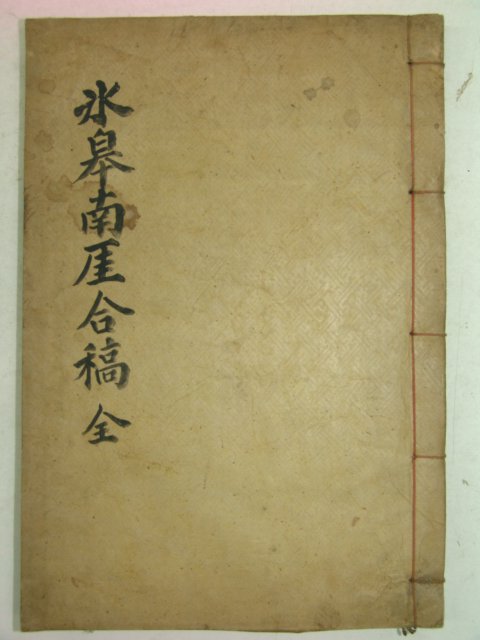 氷皐南厓合稿 全